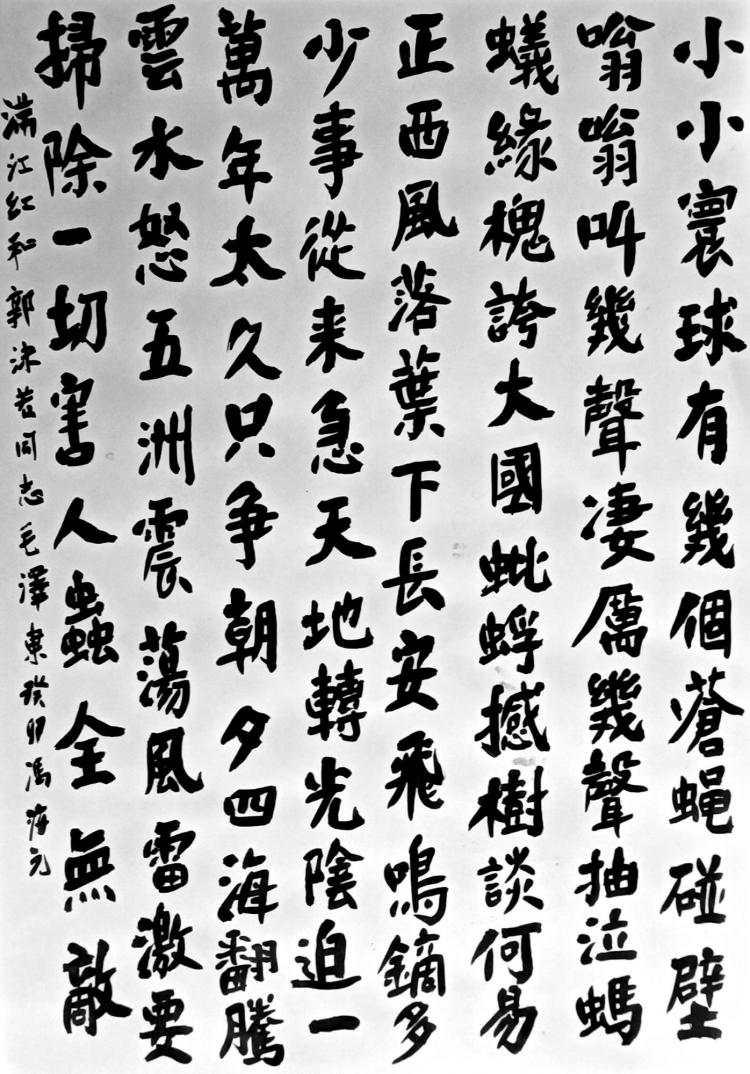 小小寰球有幾個蒼蝇碰壁
嗡嗡叫幾聲凄厲幾聲抽泣螞
蟻緣槐誇大國蚍蜉撼樹談何易
正西風落葉下長安飛鳴鏑多
少事從来急天地轉光陰迫一
萬年太久只争朝夕四海翻騰
雲水怒五洲震蕩風雷激要
掃除一切害人蟲全無敵
满江红和郭沫若同志毛澤東癸卯馮海元